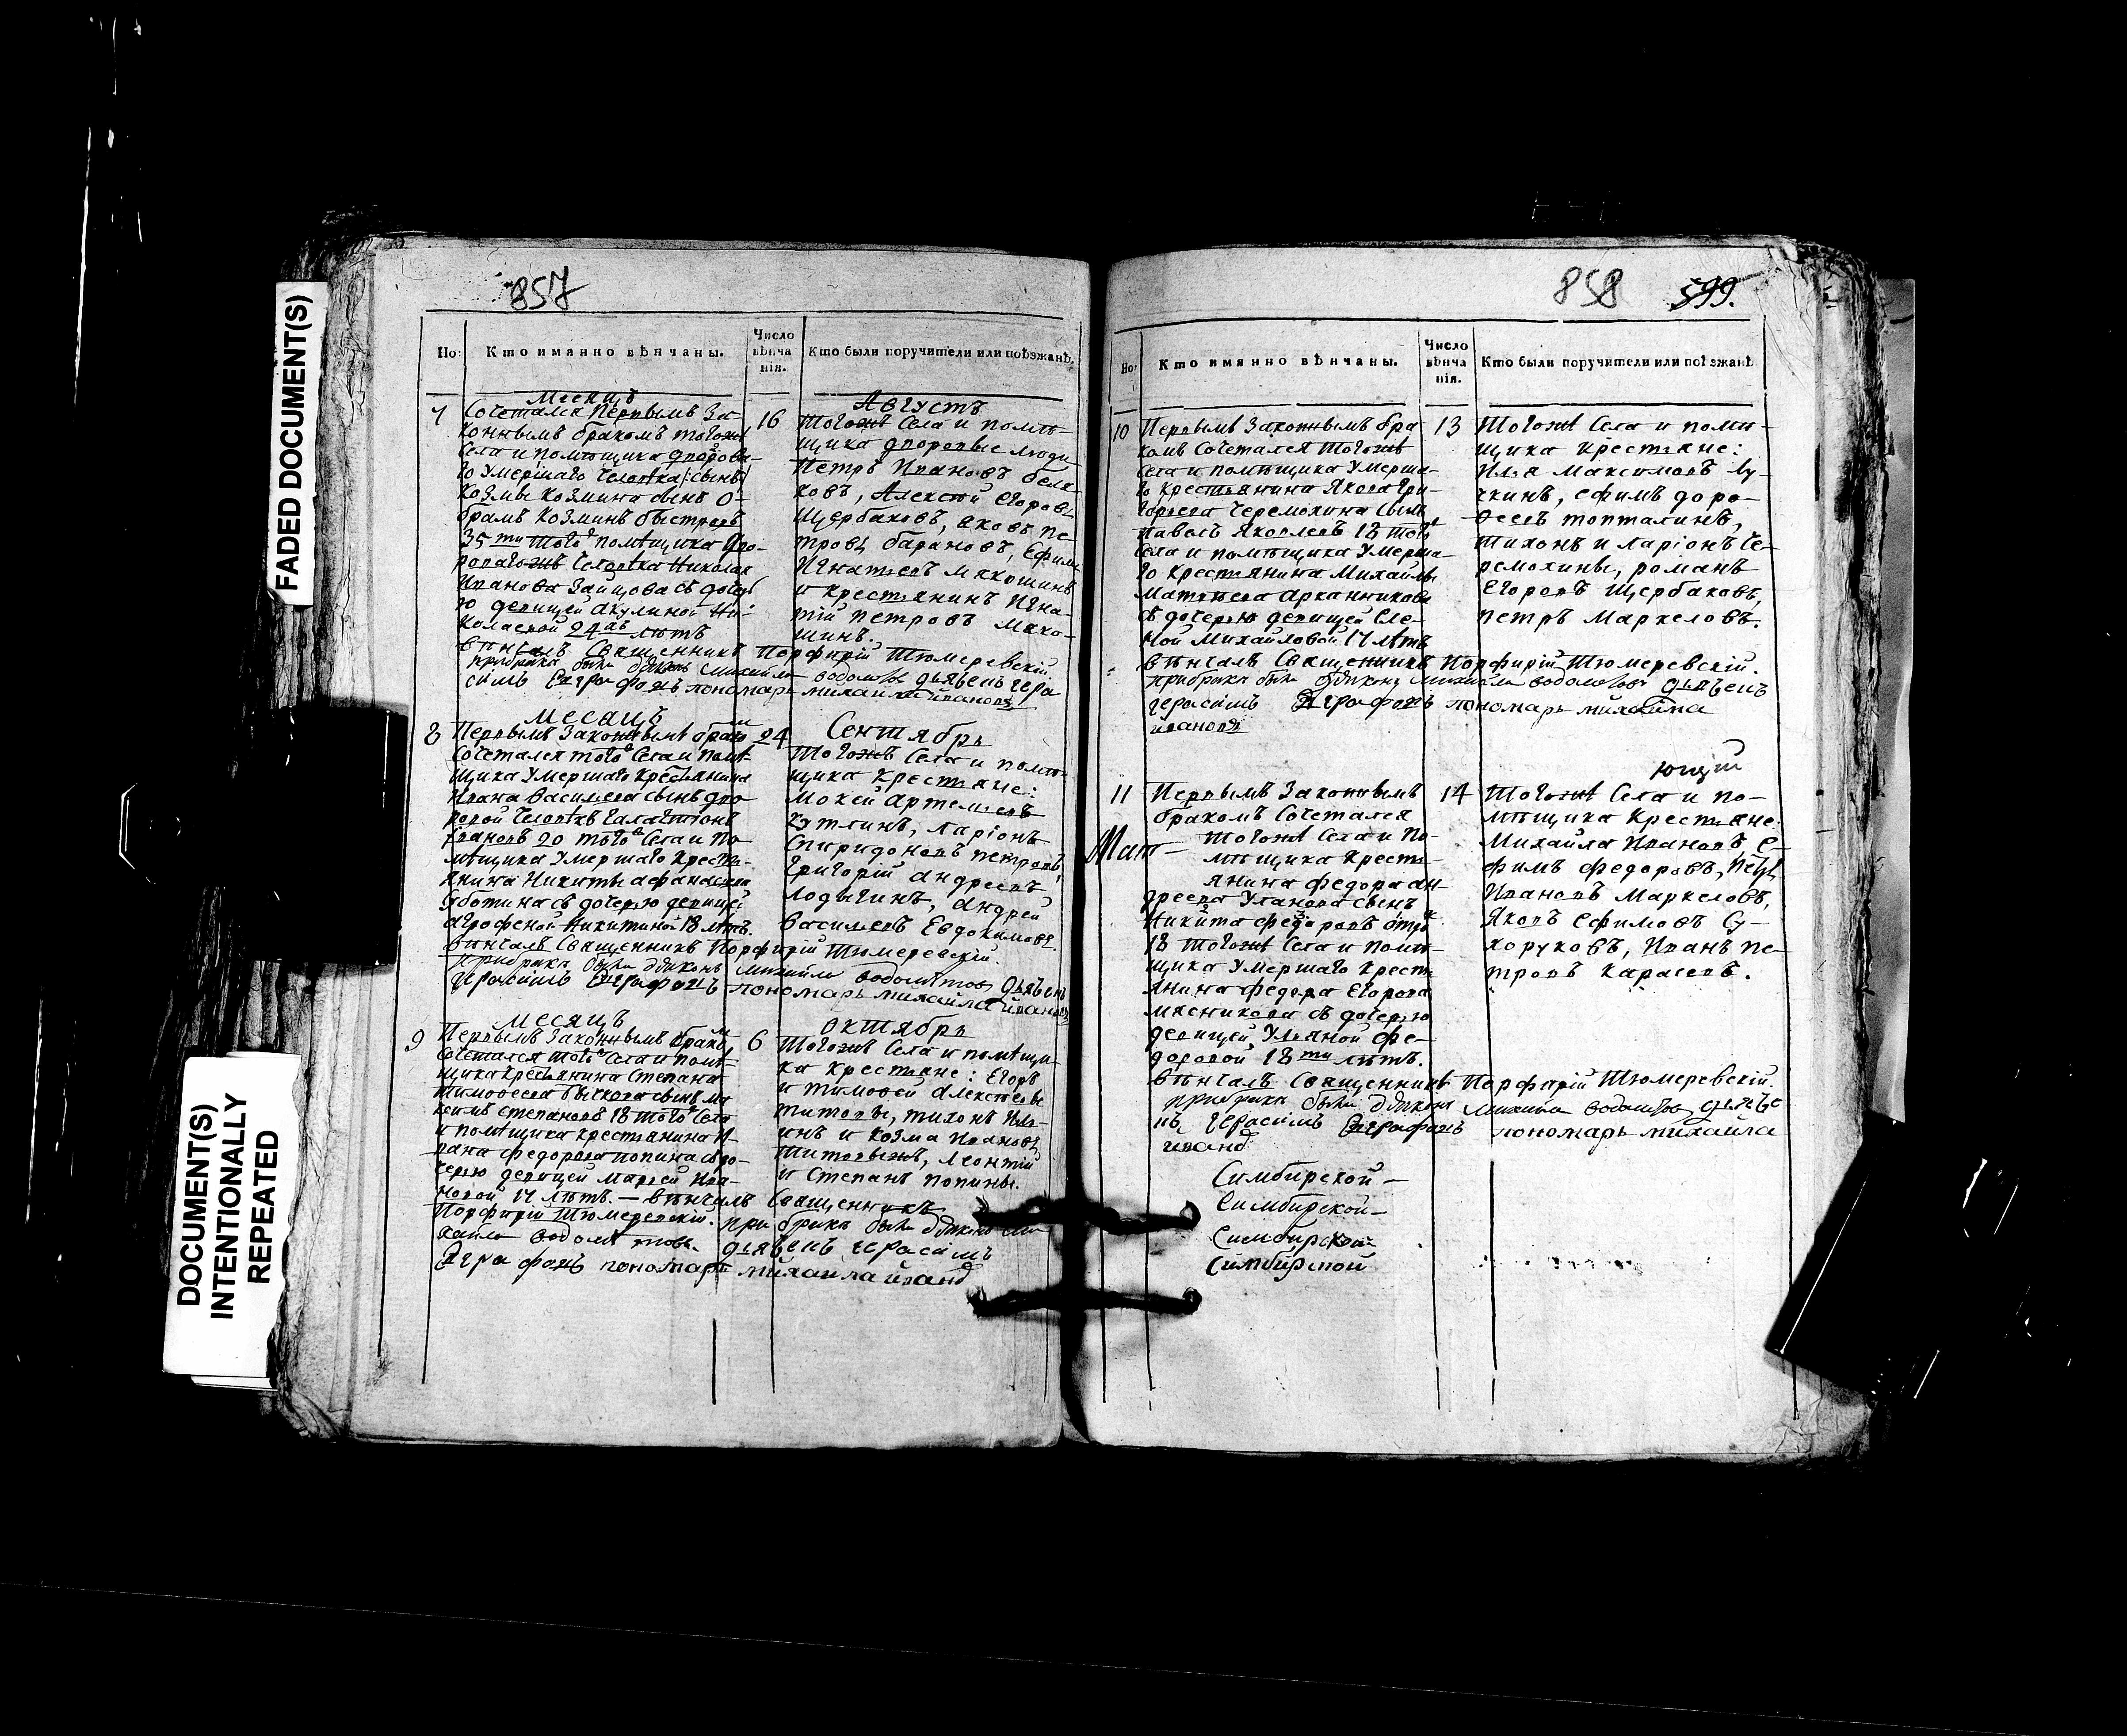 FADED DOCUMENT(S)
DOCUMENT(S)
INTENTIONALLY
REPEATED
857
Но:
Кто имянно вѣнчаны.
Число
вѣнча
нія.
Кто были поручители или поѣзжанѣ.
Месяцъ
Августъ
7
Сочетался Первымъ За-
коннымъ бракомъ тогожъ
Села и помѣщика дворова-
го Умершаго Человѣка
Козмы Козмина сынъ
Козминъ быстровъ
35 ти того помѣщика дво-
роваго Человѣка Николая
Иванова Зайцова съ дочер
ю девицей Акулиной Ни-
колаевой 24 лѣтъ
16
Тогожъ Села и помѣ-
щика дворовые люди
Петръ Ивановъ беля-
ковъ, Алексѣй Егоровъ
Щербаковъ, Яковъ Пе-
тровъ барановъ, Ефимъ
Игнатьевъ макошинъ
и крестьянинъ Игна-
тій Петровъ мако-
шинъ.
вѣнчалъ Священникъ Порфирій Тюмеревскій
при бракѣ были дьяконъ Михайла дьячекъ Гера
симъ пономарь михаила ивановъ
Месяцъ
Сентябрь
8
Первымъ Законнымъ брако
Сочетался того Села и помѣ-
щика Умершаго крестьянина
Ивана Васильева сынъ дво
ровой Человѣкъ Галактіонъ
Ивановъ 20 того Села и По
мѣщика Умершаго Кресть-
янина Никиты Афанасьева
съ дочерью девицей
Агрофеной Никитиной 18 лѣтъ.
24
Тогожъ Села и помѣ-
щика Крестьяне:
Мокей Артемьевъ
Ларіонъ
Спиридоновъ петровъ,
Григорій Андреевъ
Лодыгинъ, Андрей
Васильевъ Евдокимовъ.
вѣнчалъ Священникъ Порфирій Тюмеревскій.
при бракѣ были дьяконъ Михайла дьячекъ
Герасимъ пономарь михаила ивановъ
Месяцъ
Октябрь
9
Первымъ Законнымъ брако
Сочетался того Села и помѣ-
щика крестьянина Степана
Тимофеева бычкова сынъ ма
ксимъ степановъ 18 того Села
и помѣщика крестьянина И-
вана федорова попина съ до-
черью девицей Марьей Ива-
новой 17 лѣтъ. — вѣнчалъ Священникъ
6
Тогожъ Села и помѣщи-
ка крестьяне: Егоръ
и тимофей Алексѣевы
титовы, тихонъ Иль-
инъ и козма Ивановъ
Леонтій
и Степанъ попины.
Порфирій Тюмеревскій. при бракѣ были дьяконъ ми
хайла дьячекъ Герасимъ
пономарь михаила иванов
858
599.
Но:
Кто имянно вѣнчаны.
Число
вѣнча
нія.
Кто были поручители или поѣзжанѣ
10
Первымъ Законнымъ бра
комъ Сочетался тогожъ
Села и помѣщика Умерша-
го крестьянина Якова Гри-
горьева Черемохина Сынъ
павелъ Яковлевъ 18 того
Села и помѣщика Умерша-
го крестьянина Михайлы
Матвѣева Арканникова
съ дочерью девицей Еле-
ной Михайловой 17 лѣтъ
13
Тогожъ Села и помѣ-
щика крестьяне:
Илья Максимовъ лу-
чкинъ, ефимъ доро-
феевъ топталинъ,
тихонъ и ларіонъ Че-
ремохины, романъ
Егоровъ Щербаковъ,
петръ Маркеловъ.
вѣнчалъ Священникъ Порфирій Тюмеревскій.
при бракѣ были дьяконъ Михайла дьячекъ
герасимъ пономарь михаила
ивановъ
11
Первымъ Законнымъ
бракомъ Сочетался
тогожъ Села и По-
мѣщика Кресть-
янина федора ан-
дреева Уланова сынъ
Никита федоровъ
18 тогожъ Села и помѣ-
щика Умершаго Кресть
янина федора Егорова
мясникова съ дочерью
девицей Ульяной фе-
доровой 18 ти лѣтъ.
14
Тогожъ Села и по-
мѣщика Крестьяне:
Михайла Ивановъ, Е-
фимъ федоровъ, Петръ
Ивановъ Маркеловъ,
Яковъ Ефимовъ Су-
хоруковъ, Иванъ Пе-
тровъ карасевъ.
вѣнчалъ Священникъ Порфирій Тюмеревскій.
при бракѣ были дьяконъ Михаила дьяче
Герасимъ пономарь михаила
иванов
Симбирской —
Симбирской —
Симбирской
Симбирской